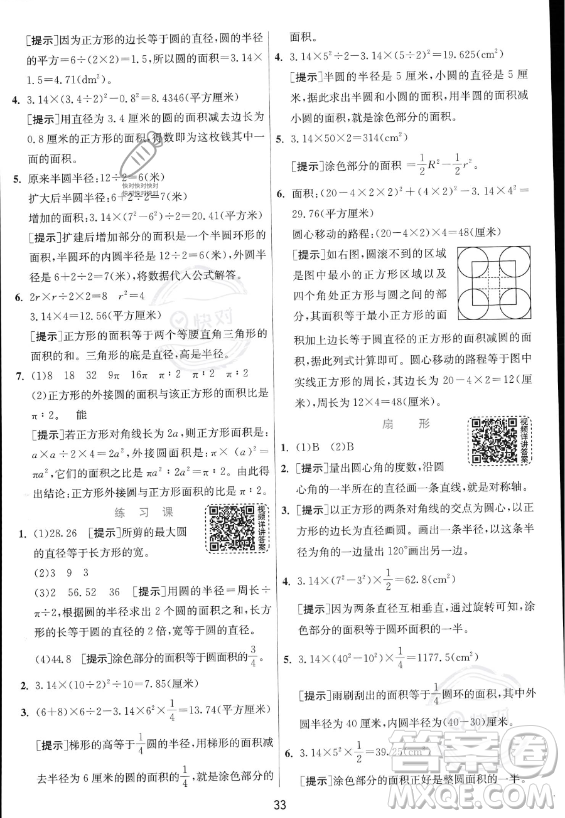 [提示]因为正方形的边长等于圆的直径,圆的半径
的平方=6÷(2×2)=1.5,所以圆的面积=3.14×
1.5=4.71(dm²)。
4. 3.14×(3.4÷2)²-0.8²=8.4346(平方厘米)
[提示]用直径为 3.4 厘米的圆的面积减去边长为
0.8 厘米的正方形的面积,得数即为这枚钱其中一
面的面积。
5. 原来半圆半径:12÷2=6(米)
扩大后半圆半径:6+2÷2=7(米)
增加的面积:3.14×(7²-6²)÷2=20.41(平方米)
[提示]扩建后增加的面积是一个半圆环形的
面积,半圆环的内圆半径是 12÷2=6(米),外圆半
径是 6+2÷2=7(米),将数据代入公式解答。
6. 2r×r÷2×2=8 r²=4
3.14×4=12.56(平方米)
[提示]正方形的面积等于两个等腰直角三角形的
面积的和。三角形的底是直径,高是半径。
7. (1)8 18 32 9π 16π π∶2 π∶2
(2)正方形的外接圆的面积与该正方形的面积比是
π∶2。 能
[提示]如果正方形对角线长为 2a,则正方形面积是
a×a÷2×2=2a²,外接圆的面积是:π×(a)²=
πa²,它们的面积比为πa²∶2a²=π∶2。由此得
出结论:正方形外接圆与正方形的面积比是π∶2。
练 习 课
1. (1)28.26 [提示]所剪的最大圆
的直径等于长方形的宽。
(2)3 9 3
(3)2 56.52 36 [提示]圆的半径=周长÷
π÷2,长方形的长等于圆的直径的 2 倍,宽等于圆
的直径。
(4)44.8 [提示]涂色部分的面积等于圆面积的3/4。
2. 3.14×(20÷2)²÷10=31.4(米)
3. (6+8)×6÷2-3.14×6²×1/4=13.74(平方厘米)
[提示]梯形的高等于圆的半径,用梯形的面积减
去半径为 6 厘米的圆的面积的1/4,就是涂色部分的
面积。
3.14×5²÷2-3.14×(5÷2)²=19.625(cm²)
[提示]半圆的半径是 5 厘米,小圆的直径是 5 厘
米,据此求出半圆和小圆的面积,用半圆的面积减
小圆的面积,就是涂色部分的面积。
5. 3.14×50×2=314(cm²)
[提示]涂色部分的面积=1/2R²-1/2r²。
6. 面积:(20-4×2×2)²+(4×2)²-3.14×4²=
29.76(平方厘米)
圆心移动的路程:(20-4×2)×4=48(厘米)
[提示]如右图,圆滚不到的区域
是图中最小的正方形区域以及
四个角处正方形与圆之间的部
分,其面积等于最小正方形面
积加上大正方形的面积减圆的面
积,据此列式计算即可。圆心移动的路程等于图中
实线正方形的周长,即(20-4×2)×4=12×4=
48(厘米)。
扇 形
1. (1)B (2)B
2. [提示]量出圆心角的度数,沿圆
心角的一半所在的直线画一条直线,就是对称轴。
3. [提示]以正方形两条对角线的交点为圆心,以正
方形的边长为直径画圆。以圆的一条半径为边,向
外量出 120°画出扇形。
4. 3.14×(7²-3²)×1/2=62.8(cm²)
[提示]因为两条直径互相垂直,通过旋转可知,涂
色部分的面积等于圆环面积的一半。
5. 3.14×(40²-10²)×1/4=1177.5(cm²)
[提示]雨刷刮出的面积是1/4圆环的面积,其中外
圆半径为 40 厘米,内圆半径为(40-30)厘米。
6. 3.14×5²×1/2=39.25(cm²)
[提示]涂色部分面积正好是整圆面积的一半。
33